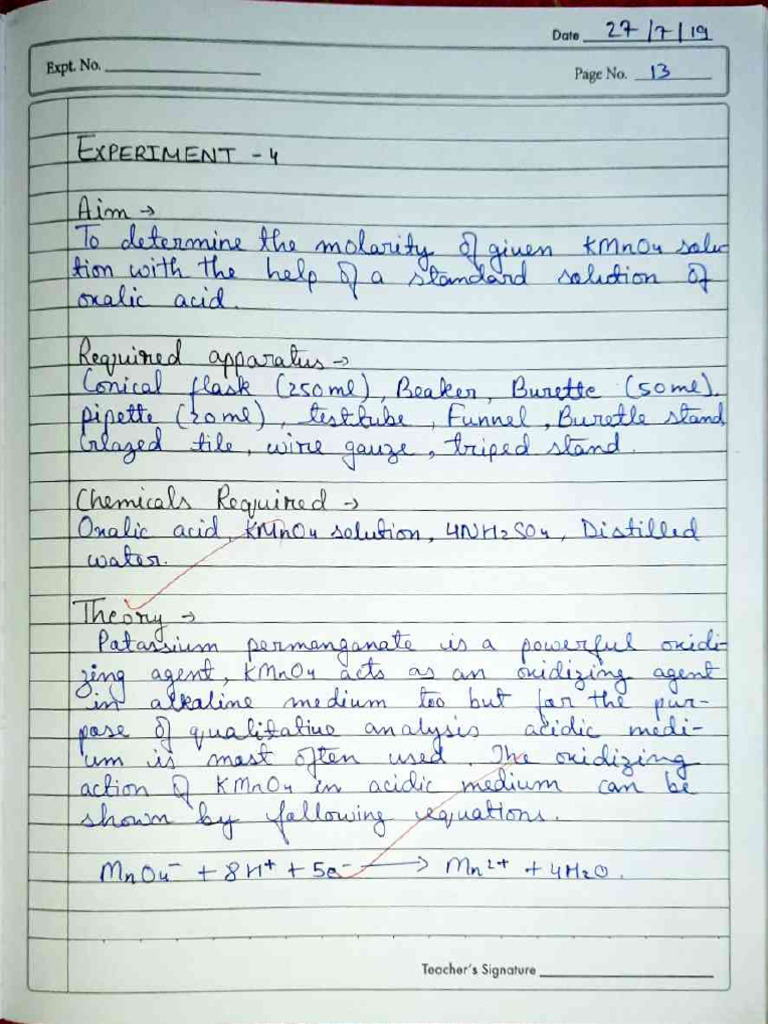 Date 27/7/19
Expt. No.
Page No. 13
EXPERIMENT - 4
Aim →
To determine the molarity of given KMnO4 solu
tion with the help of a standard solution of
oxalic acid.
Required apparatus →
Conical flask (250ml), Beaker, Burette (50ml).
pipette (20ml), testtube, Funnel, Burette stand
Glazed tile, wire gauze, triped stand.
Chemicals Required →
Oxalic acid, KMnO4 solution, 4NH2SO4, Distilled
water.
Theory →
Patassium permanganate is a powerful oxidi-
zing agent, KMnO4 acts as an oxidizing agent
in alkaline medium too but for the pur-
pose of qualitative analysis acidic medi-
um is most often used. The oxidizing
action of KMnO4 in acidic medium can be
shown by following equations.
MnO4⁻ + 8H⁺ + 5e⁻ → Mn²⁺ + 4H2O.
Teacher's Signature